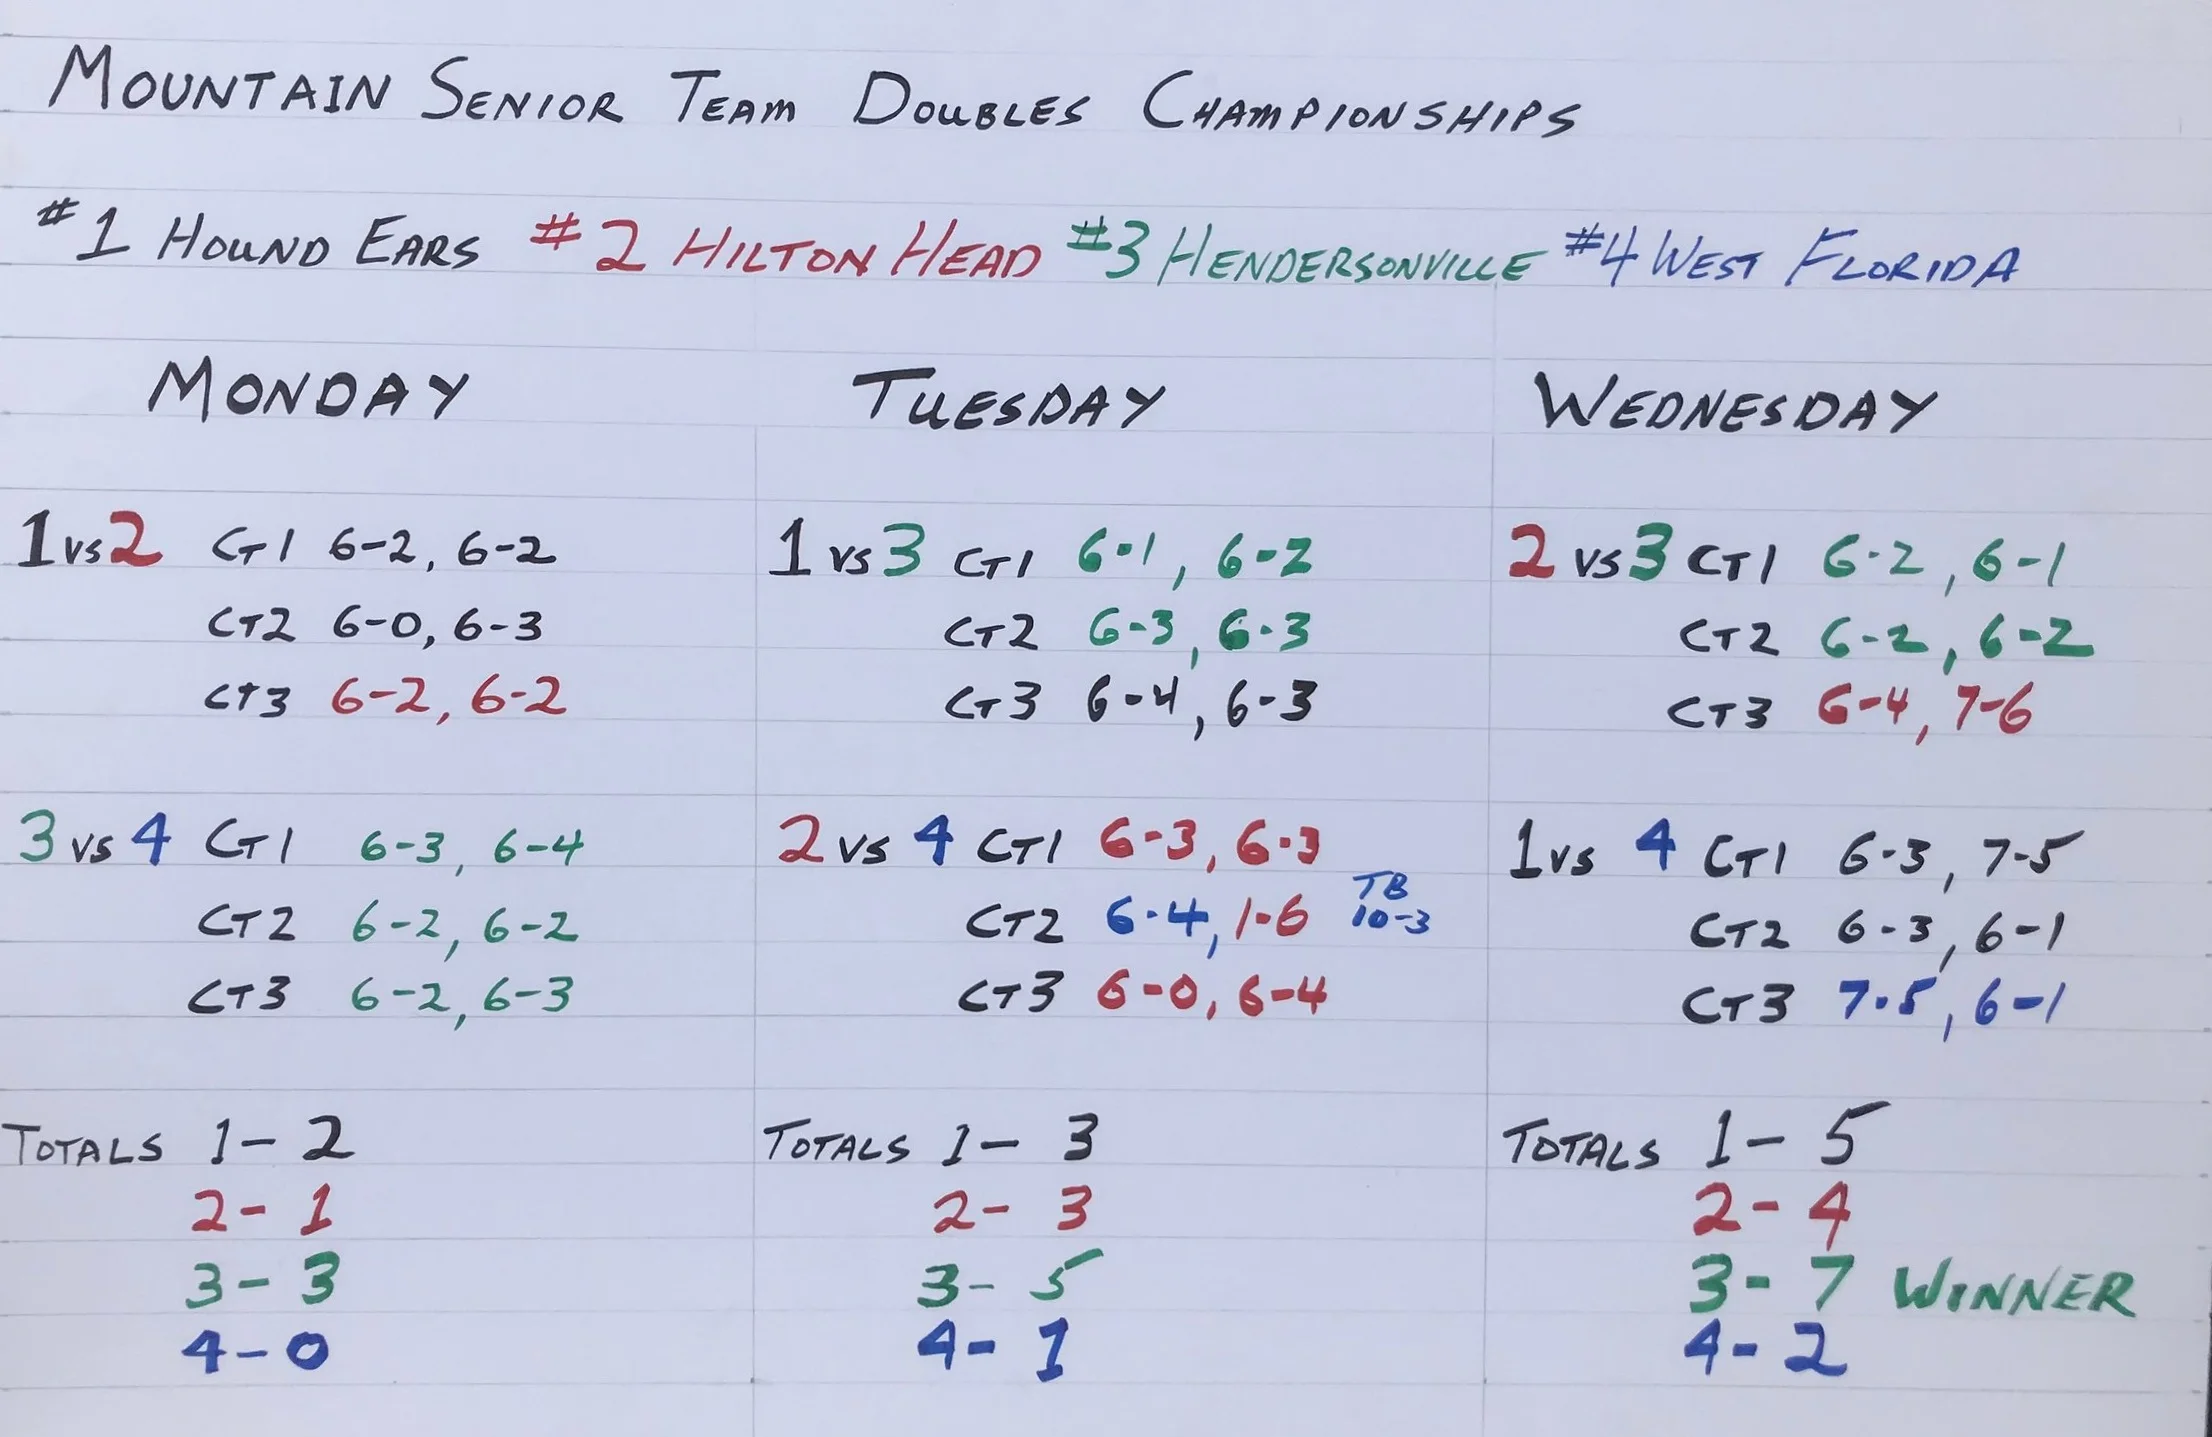 MOUNTAIN SENIOR TEAM DOUBLES CHAMPIONSHIPS
#1 HOUND EARS #2 HILTON HEAD #3 HENDERSONVILLE #4 WEST FLORIDA
MONDAY
1 vs 2 CT1 6-2, 6-2
CT2 6-0, 6-3
CT3 6-2, 6-2
3 vs 4 CT1 6-3, 6-4
CT2 6-2, 6-2
CT3 6-2, 6-3
TOTALS 1- 2
2- 1
3- 3
4- 0
TUESDAY
1 vs 3 CT1 6-1, 6-2
CT2 6-3, 6-3
CT3 6-4, 6-3
2 vs 4 CT1 6-3, 6-3
CT2 6-4, 1-6 TB 10-3
CT3 6-0, 6-4
TOTALS 1- 3
2- 3
3- 5
4- 1
WEDNESDAY
2 vs 3 CT1 6-2, 6-1
CT2 6-2, 6-2
CT3 6-4, 7-6
1 vs 4 CT1 6-3, 7-5
CT2 6-3, 6-1
CT3 7-5, 6-1
TOTALS 1- 5
2- 4
3- 7 WINNER
4- 2